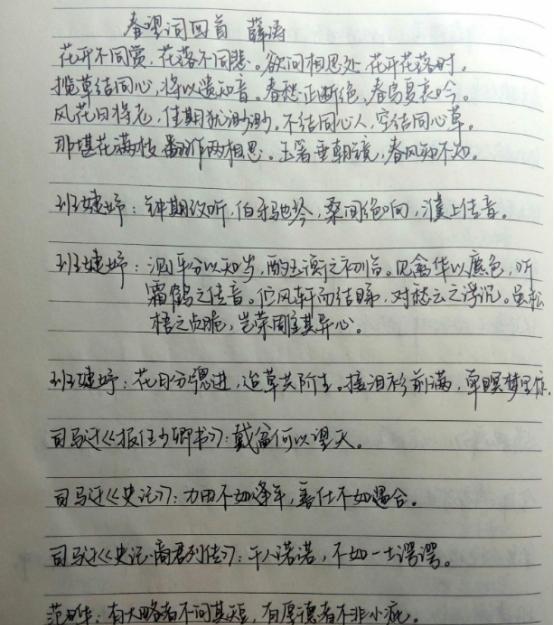 春望词四首 薛涛
花开不同赏,花落不同悲。欲问相思处,花开花落时。
揽草结同心,将以遗知音。春愁正断绝,春鸟复哀吟。
风花日将老,佳期犹渺渺。不结同心人,空结同心草。
那堪花满枝,翻作两相思。玉箸垂朝镜,春风知不知。
班婕妤:钟期改听,伯牙驰琴,桑间绝响,濮上传音。
班婕妤:测平分以知岁,酌玉衡之初临。见禽华以麃色,听
霜鹤之传音。伫风轩而结睇,对愁云之浮沉。虽松
梧之贞脆,岂荣雕其异心。
班婕妤:花日分骋进,边草共阶生。接泪衫前满,单瞑梦里
司马迁《报任少卿书》:戴盆何以望天。
司马迁《史记》:力田不如逢年,善仕不如遇合。
司马迁《史记·商君列传》:千人诺诺,不如一士谔谔。
范晔:有大略者不问其短,有厚德者不非小疵。